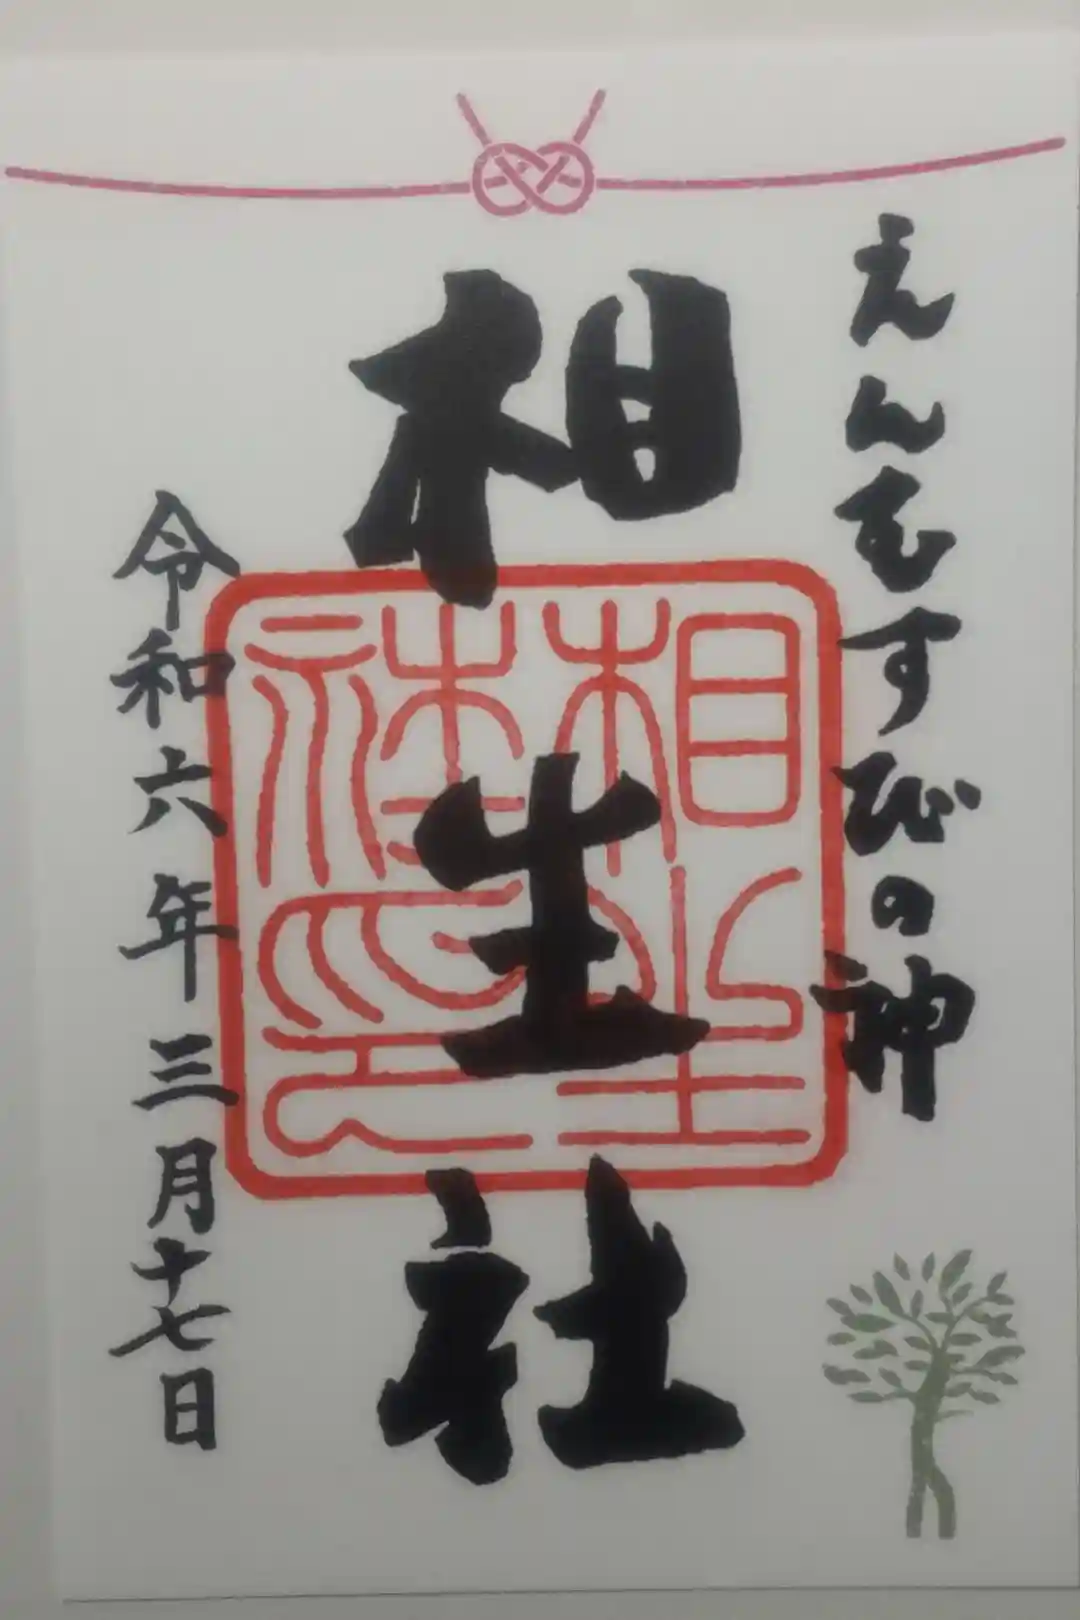 えんむすびの神
相生社
相生社之印
令和六年三月十七日